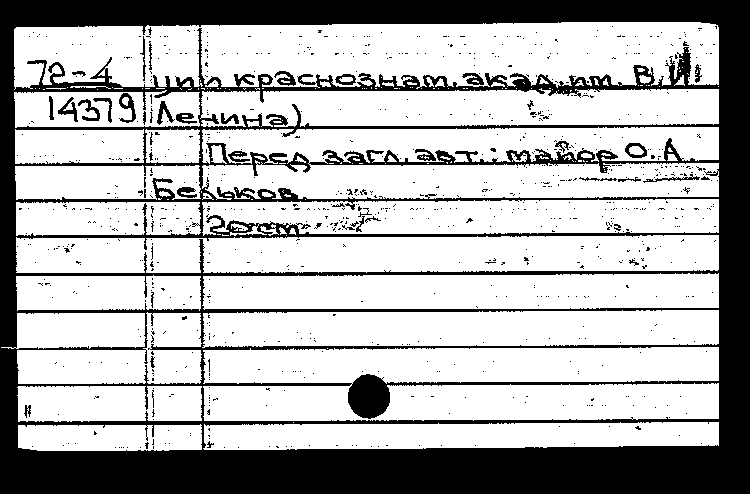 72-4 ции краснознам. акад. им. В.И.
14379 Ленина).
Перед загл. авт.: майор О.А.
Бельков.